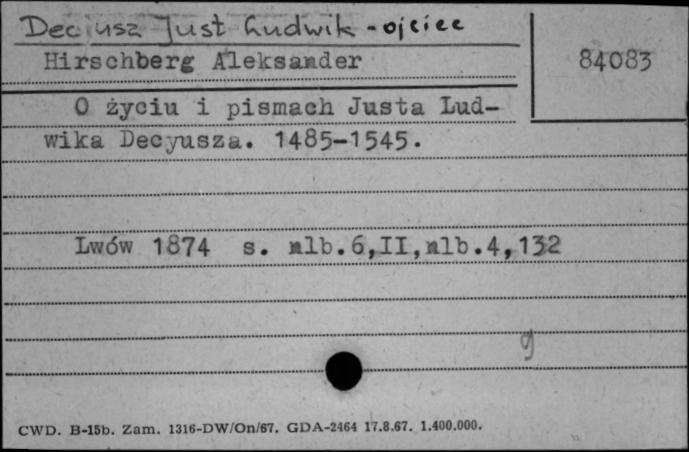 Decjusz Just Ludwik - ojciec
Hirschberg Aleksander
84083
O życiu i pismach Justa Lud-
wika Decyusza. 1485-1545.
Lwów 1874 s. nlb.6,II,nlb.4,132
9
CWD. B-15b. Zam. 1316-DW/On/67. GDA-2464 17.8.67. 1.400.000.